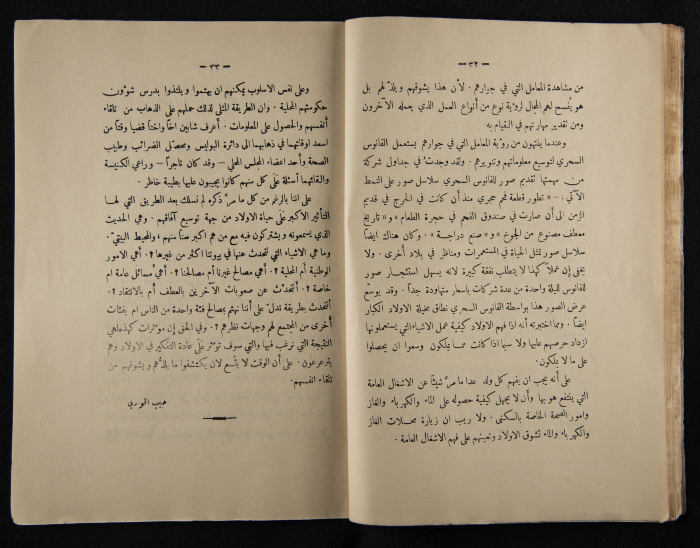 — ٣٢ —
من مشاهدة المعامل التي في جوارهم . لأن هذا يشوقهم ويلذّ لهم بل
هو يفسح لهم المجال لرؤية نوع من أنواع العمل الذي يعمله الآخرون
ومن تقدير مهارتهم في القيام به
وعندما ينتهون من رؤية المعامل التي في جوارهم يستعمل الفانوس
السحري لتوسيع معلوماتهم وتنويرهم . ولقد وجدت في جداول شركة
من مهمتها تقديم صور للفانوس السحري سلاسل صور على النمط
الآتي : — « تطور قطعة فحم حجري منذ أن كانت في الحرج في قديم
الزمن الى أن صارت في صندوق الفحم في حجرة الطعام » و « تاريخ
معطف مصنوع من الجوخ » و « صنع دراجة » . وكان هناك ايضاً
سلاسل صور تمثل الحياة في المستعمرات ومناظر في بلاد أخرى . ولا
يخفى إن عملاً كهذا لا يتطلب نفقة كبيرة لانه يسهل استئجار صور
للفانوس لليلة واحدة من عدة شركات باسعار متهاودة جداً . وقد يوسّع
عرض الصور هذا بواسطة الفانوس السحري نطاق مخيلة الاولاد الكبار
ايضاً . ومما اختبرته أنه اذا فهم الاولاد كيفية عمل الاشياء التي يستعملونها
ازداد حرصهم عليها ولا سيما اذا كانت مما يملكون وسعوا ان يحصلوا
على ما لا يملكون .
على أنه يجب ان يفهم كل ولد عدا ما مرّ شيئاً عن الاشغال العامة
التي يزداد ينتفع هو بها وأن لا يجهل كيفية حصوله على الماء والكهرباء والغاز
وامور الصحة الخاصة بالسكنى . ولا ريب ان زيارة محلات الغاز
والكهرباء والماء تشوق الاولاد وتعينهم على فهم الاشغال العامة .
— ٣٣ —
وعلى نفس الاسلوب يمكنهم ان يهتموا ويلتذوا بدرس شؤون
حكومتهم المحلية . وان الطريقة المثلى لذلك حملهم على الذهاب من تلقاء
أنفسهم والحصول على المعلومات . أعرف شابين اخاً واختاً قضيا وقتاً من
اسعد اوقاتهما في ذهابهما الى دائرة البوليس ومحصّل الضرائب وطبيب
الصحة وأحد اعضاء المجلس المحلي — وقد كان تاجراً — وراعي الكنيسة
والقائهما أسئلة على كل منهم كانوا يجيبون عليها بطيبة خاطر .
على اننا بالرغم من كل ما مرّ ذكره لم نسلك بعد الطريق التي لها
التأثير الاكبر على حياة الاولاد من جهة توسيع آفاقهم . وهي الحديث
الذي يسمعونه ويشتركون فيه مع من هم اكبر سناً منهم ، والمحيط البيتيّ .
وما هي الاشياء التي نتحدث عنها في بيوتنا اكثر من غيرها ؟ . أهي الامور
الوطنية أم المحلية ؟ . أهي مصالح غيرنا أم مصالحنا ؟ . أهي مسائل عامة ام
خاصة ؟ . أنتحدّث عن صعوبات الآخرين بالعطف أم بالانتقاد ؟ .
أنتحدث بطريقة تدلّ على أننا نهتم بمصالح فئة واحدة من الناس ام بفئات
أخرى من المجتمع لهم وجهات نظرهم ؟ . وفي الحق إن مؤثرات كهذه هي
النتيجة التي نرغب فيها والتي سوف تؤثر على عادة التفكير في الاولاد وهم
يترعرعون . على أن الوقت لا يتّسع لان يكتشفوا ما يلذّهم ويشوقهم من
تلقاء انفسهم .
حبيب الخوري